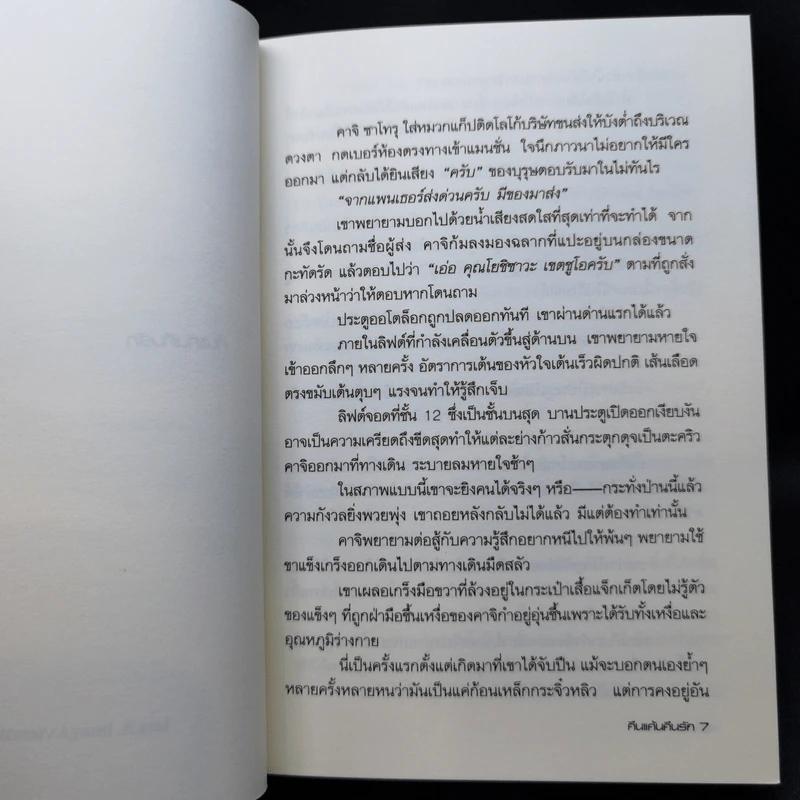 คาจิ ซาโทรุ ใส่หมวกแก็ปติดโลโก้บริษัทขนส่งให้บังต่ำถึงบริเวณ
ดวงตา กดเบอร์ห้องตรงทางเข้าแมนชั่น ใจนึกภาวนาไม่อยากให้มีใคร
ออกมา แต่กลับได้ยินเสียง “ครับ” ของบุรุษตอบรับมาในไม่ทันไร
“จากแพนเธอร์ส่งด่วนครับ มีของมาส่ง”
เขาพยายามบอกไปด้วยน้ำเสียงสดใสที่สุดเท่าที่จะทำได้ จาก
นั้นจึงโดนถามชื่อผู้ส่ง คาจิก้มลงมองฉลากที่แปะอยู่บนกล่องขนาด
กะทัดรัด แล้วตอบไปว่า “เอ่อ คุณโยชิซาวะ เขตซูโอครับ” ตามที่ถูกสั่ง
มาล่วงหน้าว่าให้ตอบหากโดนถาม
ประตูออโตล็อกถูกปลดออกทันที เขาผ่านด่านแรกได้แล้ว
ภายในลิฟต์ที่กำลังเคลื่อนตัวขึ้นสู่ด้านบน เขาพยายามหายใจ
เข้าออกลึกๆ หลายครั้ง อัตราการเต้นของหัวใจเต้นเร็วผิดปกติ เส้นเลือด
ตรงขมับเต้นตุบๆ แรงจนทำให้รู้สึกเจ็บ
ลิฟต์จอดที่ชั้น 12 ซึ่งเป็นชั้นบนสุด บานประตูเปิดออกเงียบงัน
อาจเป็นความเครียดถึงขีดสุดทำให้แต่ละย่างก้าวสั่นกระตุกดุจเป็นตะคริว
คาจิออกมาที่ทางเดิน ระบายลมหายใจช้าๆ
ในสภาพแบบนี้เขาจะยิงคนได้จริงๆ หรือ——กระทั่งป่านนี้แล้ว
ความกังวลยิ่งพวยพุ่ง เขาถอยหลังกลับไม่ได้แล้ว มีแต่ต้องทำเท่านั้น
คาจิพยายามต่อสู้กับความรู้สึกอยากหนีไปให้พ้นๆ พยายามใช้
ขาแข็งเกร็งออกเดินไปตามทางเดินมืดสลัว
เขาเผลอเกร็งมือขวาที่ล้วงอยู่ในกระเป๋าเสื้อแจ็กเก็ตโดยไม่รู้ตัว
ของแข็งๆ ที่ถูกฝ่ามือชื้นเหงื่อของคาจิกำอยู่อุ่นขึ้นเพราะได้รับทั้งเหงื่อและ
อุณหภูมิร่างกาย
นี่เป็นครั้งแรกตั้งแต่เกิดมาที่เขาได้จับปืน แม้จะบอกตนเองย้ำๆ
หลายครั้งหลายหนว่ามันเป็นแค่ก้อนเหล็กกระจิ๋วหลิว แต่การคงอยู่อัน
คืนแค้นคืนรัก 7